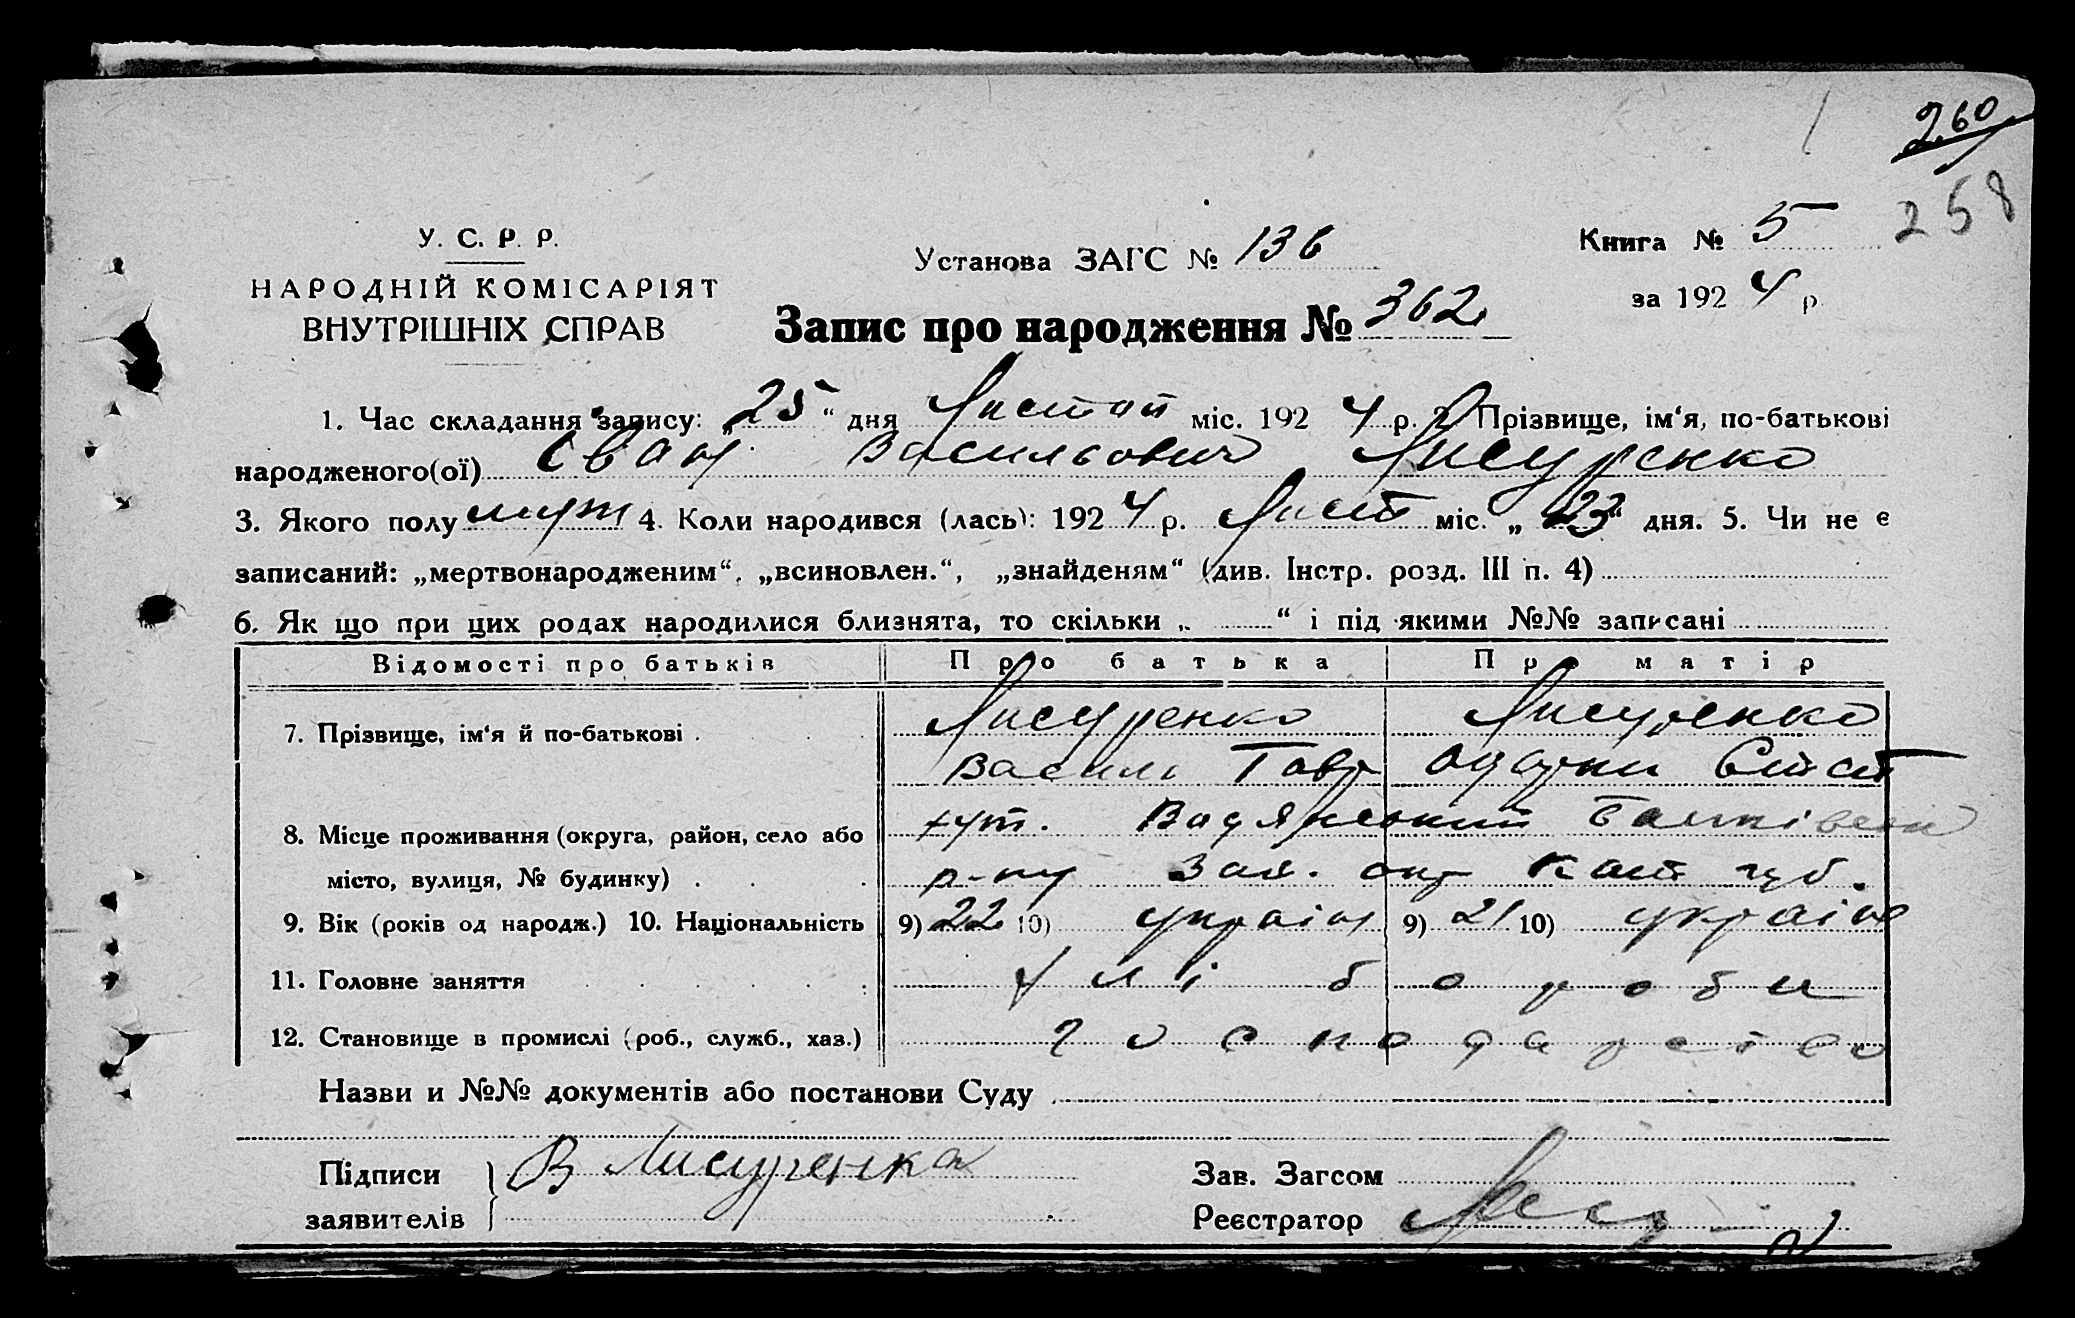 260
258
У. С. Р. Р.
НАРОДНІЙ КОМІСАРІЯТ
ВНУТРІШНІХ СПРАВ
Установа ЗАГС № 136
Книга № 5
за 1924 р.
Запис про народження № 362
1. Час складання запису: „25“ дня Листоп міс. 1924 р. 2. Прізвище, ім'я, по-батькові
народженого(ої) Іван Васильович Лисуренко
3. Якого полу муж 4. Коли народився (лась): 1924 р. Лист міс. „23“ дня. 5. Чи не є
записаний: „мертвонародженим“, „всиновлен.“, „знайденям“ (див. Інстр. розд. III п. 4)
6. Як що при цих родах народилися близнята, то скільки „ “ і під якими №№ записані
Відомості про батьків Про батька Про матір
7. Прізвище, ім'я й по-батькові . Лисуренко Лисуренко
Василь Гавр Одарка
8. Місце проживання (округа, район, село або хут. Водянський
місто, вулиця, № будинку) . р-ну Зап. окр Кат губ.
9. Вік (років од народж.) 10. Національність 9) 22 10) україн 9) 21 10) україн
11. Головне заняття хлібороби
12. Становище в промислі (роб., служб., хаз.) господарство
Назви и №№ документів або постанови Суду
Підписи заявителів В Лисуренка
Зав. Загсом
Реєстратор